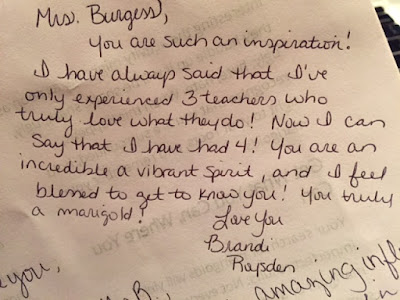 Mrs. Burgess,
You are such an inspiration!
I have always said that I've
only experienced 3 teachers who
truly love what they do! Now I can
say that I have had 4! You are an
incredible a vibrant spirit, and I feel
blessed to get to know you! You truly
a marigold!
Love You
Brandi
Raysden
you,
B.,
amazing